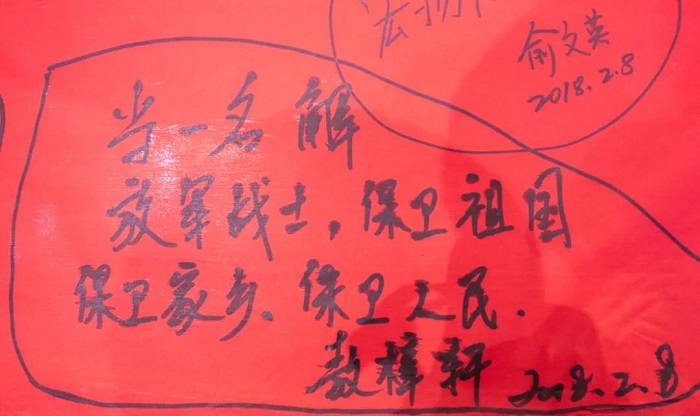 俞文英
2018.2.8
当一名解
放军战士,保卫祖国
保卫家乡、保卫人民.
敖梓轩 2018.2.8